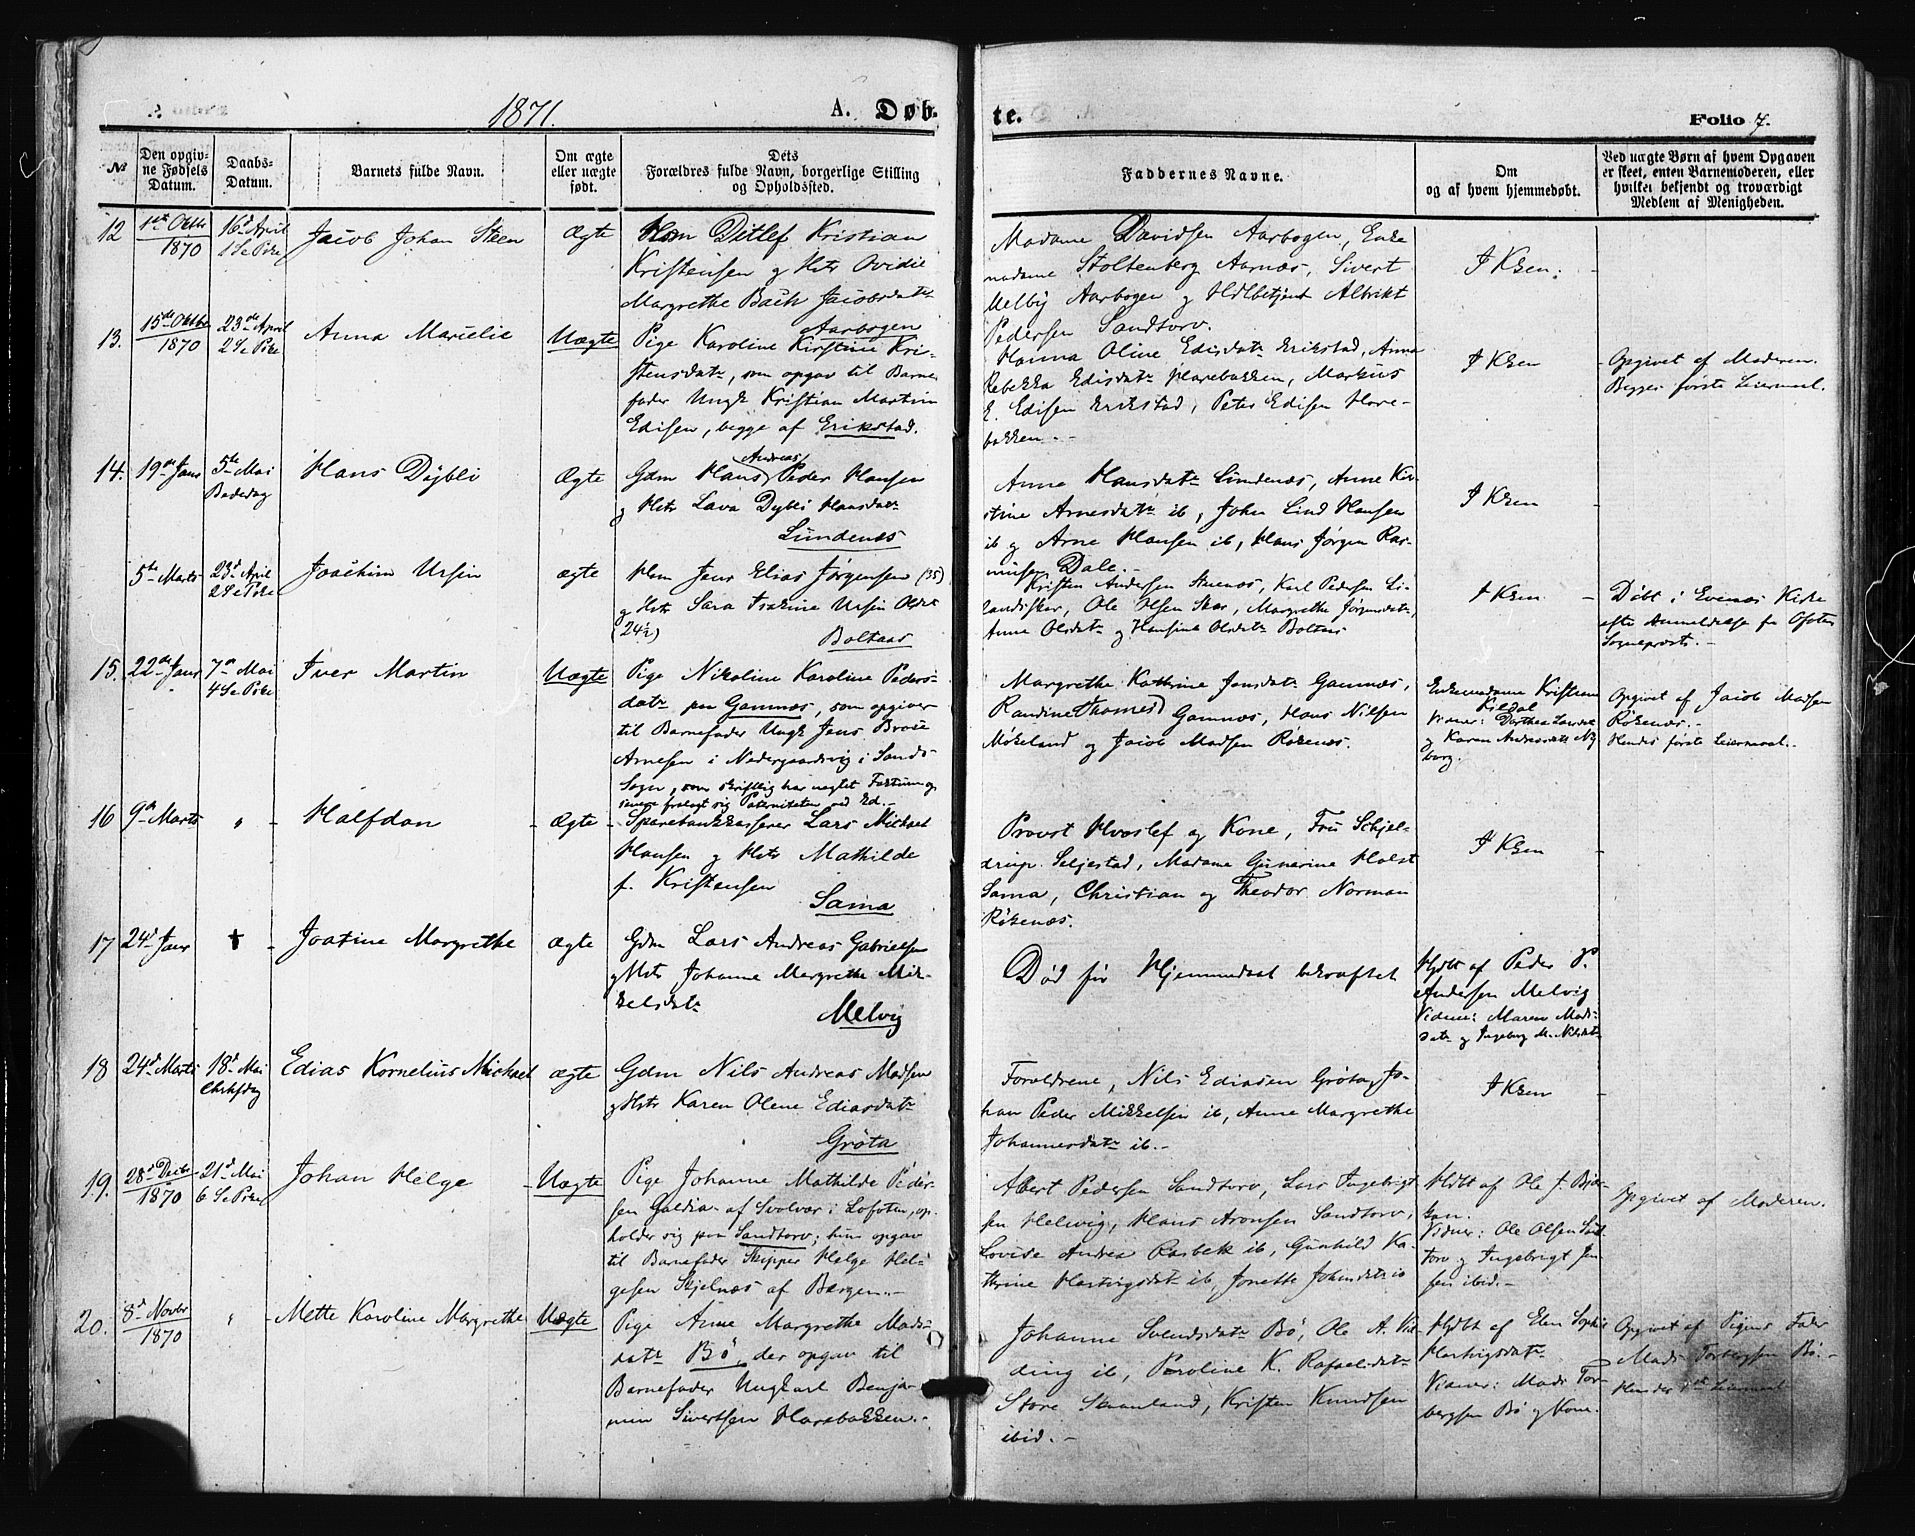 1871.
A. Døb-
te.
Folio 7.
№
Den opgiv-
ne Fødsels
Datum.
Daabs-
Datum.
Barnets fulde Navn.
Om ægte
eller uægte
født.
Dets
Forældres fulde Navn, borgerlige Stilling
og Opholdssted.
Faddernes Navne.
Om
og af hvem hjemmedøbt.
Ved uægte Børn af hvem Opgaven
er skeet, enten Barnemoderen, eller
hvilket bekjendt og troværdigt
Medlem af Menigheden.
12
1ste Oktbr
1870
16d April
1 S e Pske
Jacob Johan Steen
Ægte
Hsm Ditlef Kristian
Kristensen g Hstr Ovidie
Margrethe Bach Jacobsdatr
Aarbogen
Madame Davidsen Aarbogen, Enke
madame Stoltenberg Aarnæs, Sivert
Melby Aarbogen g Hdlbetjent Altrikt
Pedersen Sandtorv.
I Kken.
13.
15de Oktbr
1870
23de April
2 S e Pske
Anna Marielie
Uægte
Pige Karoline Kirstine Kri-
stensdatr, som opgav til Barne-
fader Ungk Kristian Martin
Edisen, begge af Erikstad.
Hanna Oline Edisdatr Erikstad, Anna
Rebekka Edisdatr Harebakken, Markus
E. Edisen Erikstad, Peter Edisen Hare-
bakken.-
I Kken
Opgivet af Moderen.
Begges første Leiermaal.
14.
19de Janr
5te Mai
Bededag
Hans Dÿbli
Ægte
Gdm Hans Andreas Peder Hansen
g Hstr Lava Dybli Hansdatr
Lundenæs
Anne Hansdatr Lundenæs, Anne Kir-
stine Arnesdatr ib, John Lind Hansen
ib g Arne Hansen ib, Hans Jørgen Ras-
musen Dale.-
I Kken
5te Marts
23d April
2 S e Pske
Joachim Ursin
ægte
Hsm Jens Elias Jørgensen (35)
g Hstr Sara Ursin Olsdtr
(24½)
Boltaas
Kristen Andersen Stunæs, Karl Pedersen Li-
landskar, Ole Olsen Skar, Margrethe Jørgensdatr,
Anne Olsdatr g Hansine Olsdatr Boltaas
I Kken
Døbt i Evenæs Kirke
efter Anmeldelse fra Ofoten
Sognepræst.-
15.
22de Janr
7de Mai
4 S e Pske
Iver Martin
Uægte
Pige Nikoline Karoline Peders-
datr paa Gamnæs, som opgiver
til Barnefader Ungk Jens Brose
Arnesen i Nedergaardsvig i Sands
Sogn, som skriftlig har nægtet Factum og
senere fralagt sig Paterniteten ved Ed.-
Margrethe Kathrine Jensdatr Gamnæs,
Randine Thomesd Gamnæs, Hans Nilsen
Møkeland og Jacob Madsen Røkenæs.
Enkemadame Kristiane
Kildal
Vidner: Dorthea
g Karen Andreasdatr Ny-
borg.
Opgivet af Jacob Madsen
Røkenæs.-
Hendes første Leiermaal.-
16
9de Marts
"
Halfdan
Ægte
Sparebankkasserer Lars Michael
Hansen g Hstr Mathilde
f. Kristensen
Sama
Provst Hvoslef og Kone, Fru Schjel-
drup Seljestad, Madame Gunerine Holst
Sama, Christian og Theodor Norman
Røkenæs.
I Kken
17
24d Janr
†
Joatine Margrethe
Ægte
Gdm Lars Andreas Gabrielsen
g Hstr Johanne Margrethe Mik-
kelsdatr
Melvig
Død før Hjemmedaab bekræftet
Hjdbt af Peder P.
Andersen Melvig
Vidner: Maren Mads-
datr g Ingeborg M. Nilsdatr
18
24d Marts
18d Mai
Chrhfdg
Edias Kornelius Michael
ægte
Gdm Nils Andreas Madsen
g Hstr Karen Olene Ediasdatr
Grøta
Forældrene, Nils Ediasen Grøta, Jo-
han Peder Mikkelsen ib, Anne Margrethe
Johannesdatr ib.-
I Kken
19.
28d Decbr
1870
21d Mai
6 S e Pske
Johan Helge
Uægte
Pige Johanne Mathilde Peder-
sen Galdia af Svolvær i Lofoten, op-
holder sig paa Sandtorv; hun opgav
til Barnefader Skipper Helge Hel-
gesen Skjelnæs af Bergen.-
Albert Pedersen Sandtorv, Lars Ingebrigt
sen Melvig, Hans Aronsen Sandtorv,
Lovise Andrea Rasbek ib, Gunhild Ka-
thrine Hartvigsdatr ib, Jonette Johansdatr ib
Hjdbt af Ole J. Bjør-
kan.
Vidner: Ole Olsen Sand
torv og Ingebrigt Jen
sen ibid.-
Opgivet af Moderen.
20.
8d Novbr
1870
"
Mette Karoline Margrethe
Uægte
Pige Anne Margrethe Mads-
datr Bø, der opgav til
Barnefader Ungkarl Benja-
min Sivertsen Harebakken.-
Johanne Svendsdatr Bø, Ole A. Vid-
ding ib, Paroline K. Rafaelsdatr
Store Skaanland, Kristen Knudsen
ibid.-
Hjdbt af Elen Sophie
Hartvigsdatr
Vidner: Mads Tor-
bergsen Bø g Kone.
Opgivet af Pigens Fader
Mads Torbergsen Bø.-
Hendes 1st Leiermaal